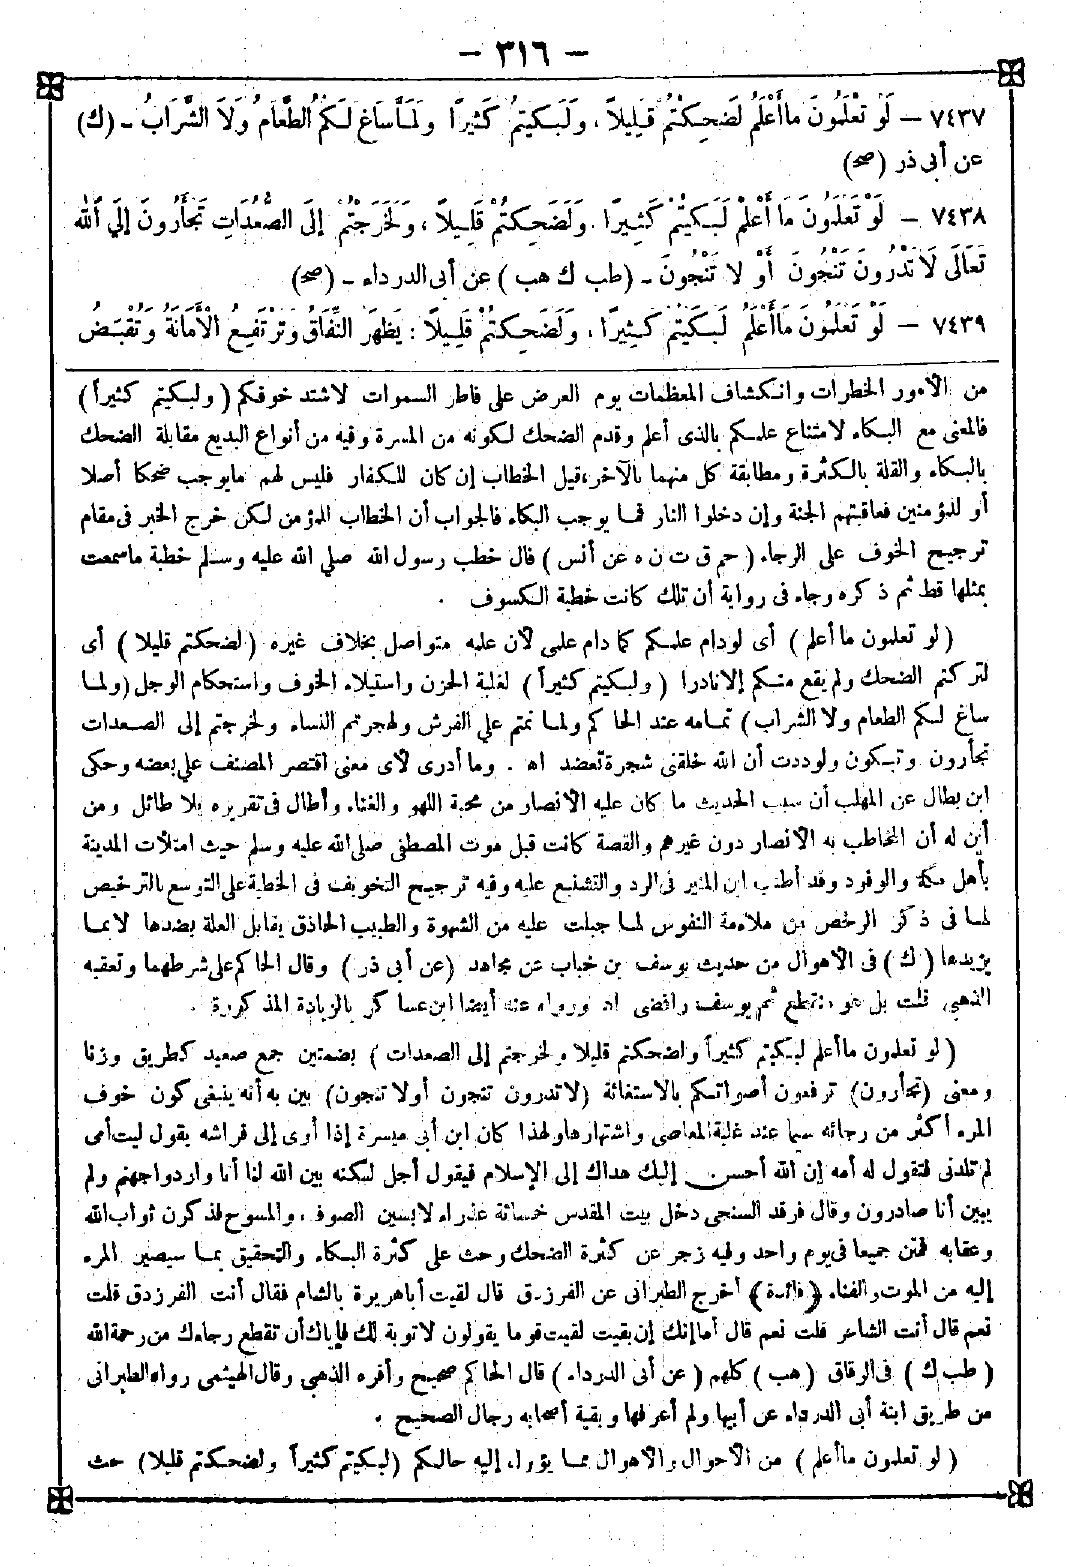 – ٣١٦ –
٧٤٣٧ – لَوْ تَعْلَمُونَ مَا أَعْلَمُ لَضَحِكْتُمْ قَلِيلاً، وَلَبَكَيْتُمْ كَثِيرًا وَلَمَا سَاغَ لَكُمُ الطَّعَامُ وَلَا الشَّرَابُ – (ك)
عن أبى ذر (صح)
٧٤٣٨ – لَوْ تَعْلَمُونَ مَا أَعْلَمُ لَبَكَيْتُمْ كَثِيرًا. وَلَضَحِكْتُمْ قَلِيلاً، وَلَخَرَجْتُمْ إِلَى الصُّعُدَاتِ تَجْأَرُونَ إِلَى اللهِ
تَعَالَى لَا تَدْرُونَ تَنْجُونَ أَوْ لَا تَنْجُونَ – (طب ك هب) عن أبى الدرداء – (صح)
٧٤٣٩ – لَوْ تَعْلَمُونَ مَا أَعْلَمُ لَبَكَيْتُمْ كَثِيرًا، وَلَضَحِكْتُمْ قَلِيلاً: يَظْهَرُ النِّفَاقُ وَتَرْتَفِعُ الْأَمَانَةُ وَتُقْبَضُ
من الأمور الخطرات وانكشاف المعظمات يوم العرض على فاطر السموات لاشتد خوفكم (ولبكيتم كثيراً)
فالمعنى مع البكاء لامتناع علمكم بالذى أعلم وقدم الضحك لكونه من المسرة وفيه من أنواع البديع مقابلة الضحك
بالبكاء والقلة بالكثرة ومطابقة كل منهما بالآخر، قيل الخطاب إن كان للكفار فليس لهم مايوجب ضحكا أصلا
أو للمؤمنين فعاقبتهم الجنة وإن دخلوا النار فما يوجب البكاء فالجواب أن الخطاب للمؤمن لكن خرج الخبر فى مقام
ترجيح الخوف على الرجاء (حم ق ت ن ه عن أنس) قال خطب رسول الله صلي الله عليه وسلم خطبة ماسمعت
بمثلها قط ثم ذكره وجاء فى رواية أن تلك كانت خطبة الكسوف .
(لو تعلمون ما أعلم) أى لودام علمكم كما دام علمى لأن علمه متواصل بخلاف غيره (لضحكتم قليلا) أى
لتركتم الضحك ولم يقع منكم إلا نادرا (ولبكيتم كثيراً) لغلبة الحزن واستيلاء الخوف واستحكام الوجل (ولما
ساغ لكم الطعام ولا الشراب) تمامه عند الحاكم ولما نمتم علي الفرش ولهجرتم النساء ولخرجتم إلى الصعدات
تجأرون وتبكون ولوددت أن الله خلقنى شجرة تعضد اه . وما أدرى لأى معنى اقتصر المصنف علي بعضه وحكى
ابن بطال عن المهلب أن سبب الحديث ما كان عليه الأنصار من محبة اللهو والغناء وأطال فى تقريره بلا طائل ومن
أين له أن المخاطب به الأنصار دون غيرهم والقصة كانت قبل موت المصطفى صلى الله عليه وسلم حيث امتلأت المدينة
بأهل مكة والوفود وقد أطنب ابن المنير فى الرد والتشنيع عليه وفيه ترجيح التخويف فى الخطبة على التوسع بالترخيص
لما فى ذكر الرخص من ملاءمة النفوس لما جبلت عليه من الشهوة والطبيب الحاذق يقابل العلة بضدها لا بما
يزيدها (ك) فى الأهوال من حديث يوسف بن خباب عن مجاهد (عن أبى ذر) وقال الحاكم على شرطهما وتعقبه
الذهبي قلت بل هو منقطع ثم يوسف رافضى اه ورواه عنه أيضا ابن عساكر بالزيادة المذكورة .
(لو تعلمون ما أعلم لبكيتم كثيراً ولضحكتم قليلا ولخرجتم إلى الصعدات) بضمتين جمع صعيد كطريق وزنا
ومعنى (تجأرون) ترفعون أصواتكم بالاستغاثة (لا تدرون تنجون أو لا تنجون) بين به أنه ينبغى كون خوف
المرء أكثر من رجائه سيما عند غلبة المعاصى واشتهارها ولهذا كان ابن أبى ميسرة إذا أوى إلى فراشه يقول ليت أمى
لم تلدنى فتقول له أمه إن الله أحسن إليك هداك إلى الإسلام فيقول أجل لكنه بين الله لنا أنا واردوا جهنم ولم
يبين أنا صادرون وقال فرقد السنجى دخل بيت المقدس خمسمائة عذراء لابسين الصوف والمسوح فذكرن ثواب الله
وعقابه فمتن جميعا فى يوم واحد وفيه زجر عن كثرة الضحك وحث على كثرة البكاء والتحقيق بما سيصير المرء
إليه من الموت والفناء (فائدة) أخرج الطبرانى عن الفرزدق قال لقيت أباهريرة بالشام فقال أنت الفرزدق قلت
نعم قال أنت الشاعر قلت نعم قال أما إنك إن بقيت لقيت قوما يقولون لا توبة لك فإياك أن تقطع رجاءك من رحمة الله
(طب ك) فى الرقاق (هب) كلهم (عن أبى الدرداء) قال الحاكم صحيح وأقره الذهبي وقال الهيثمى رواه الطبرانى
من طريق ابنة أبى الدرداء عن أبيها ولم أعرفها وبقية أصحابه رجال الصحيح .
(لو تعلمون ما أعلم) من الأحوال والأهوال مما يؤول إليه حالكم (لبكيتم كثيراً ولضحكتم قليلا) حث